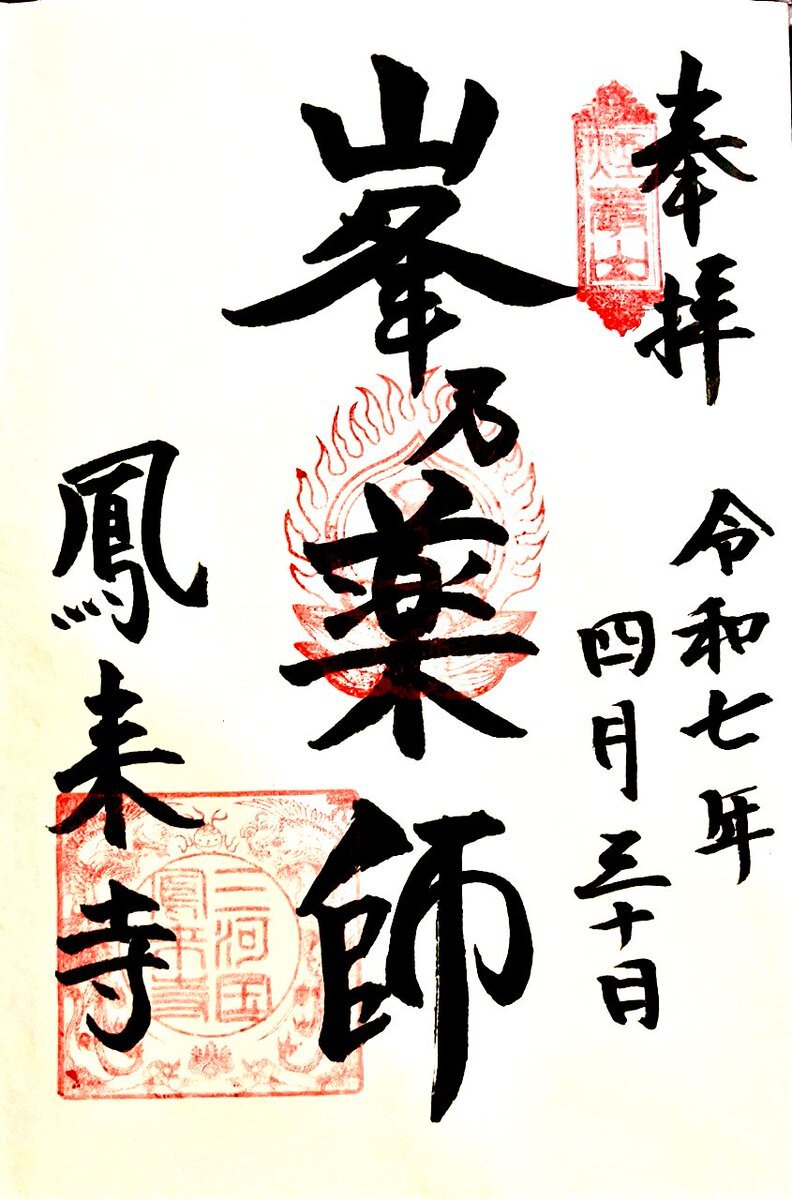 奉拝
令和七年
四月三十日
煙巌山
峯乃薬師
鳳来寺
三河国
鳳来寺